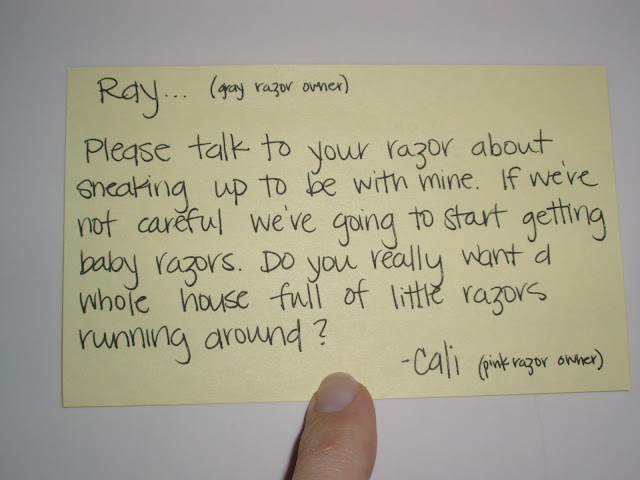 Ray... (gray razor owner)
Please talk to your razor about
sneaking up to be with mine. If we're
not careful we're going to start getting
baby razors. Do you really want a
whole house full of little razors
running around?
-Cali (pink razor owner)